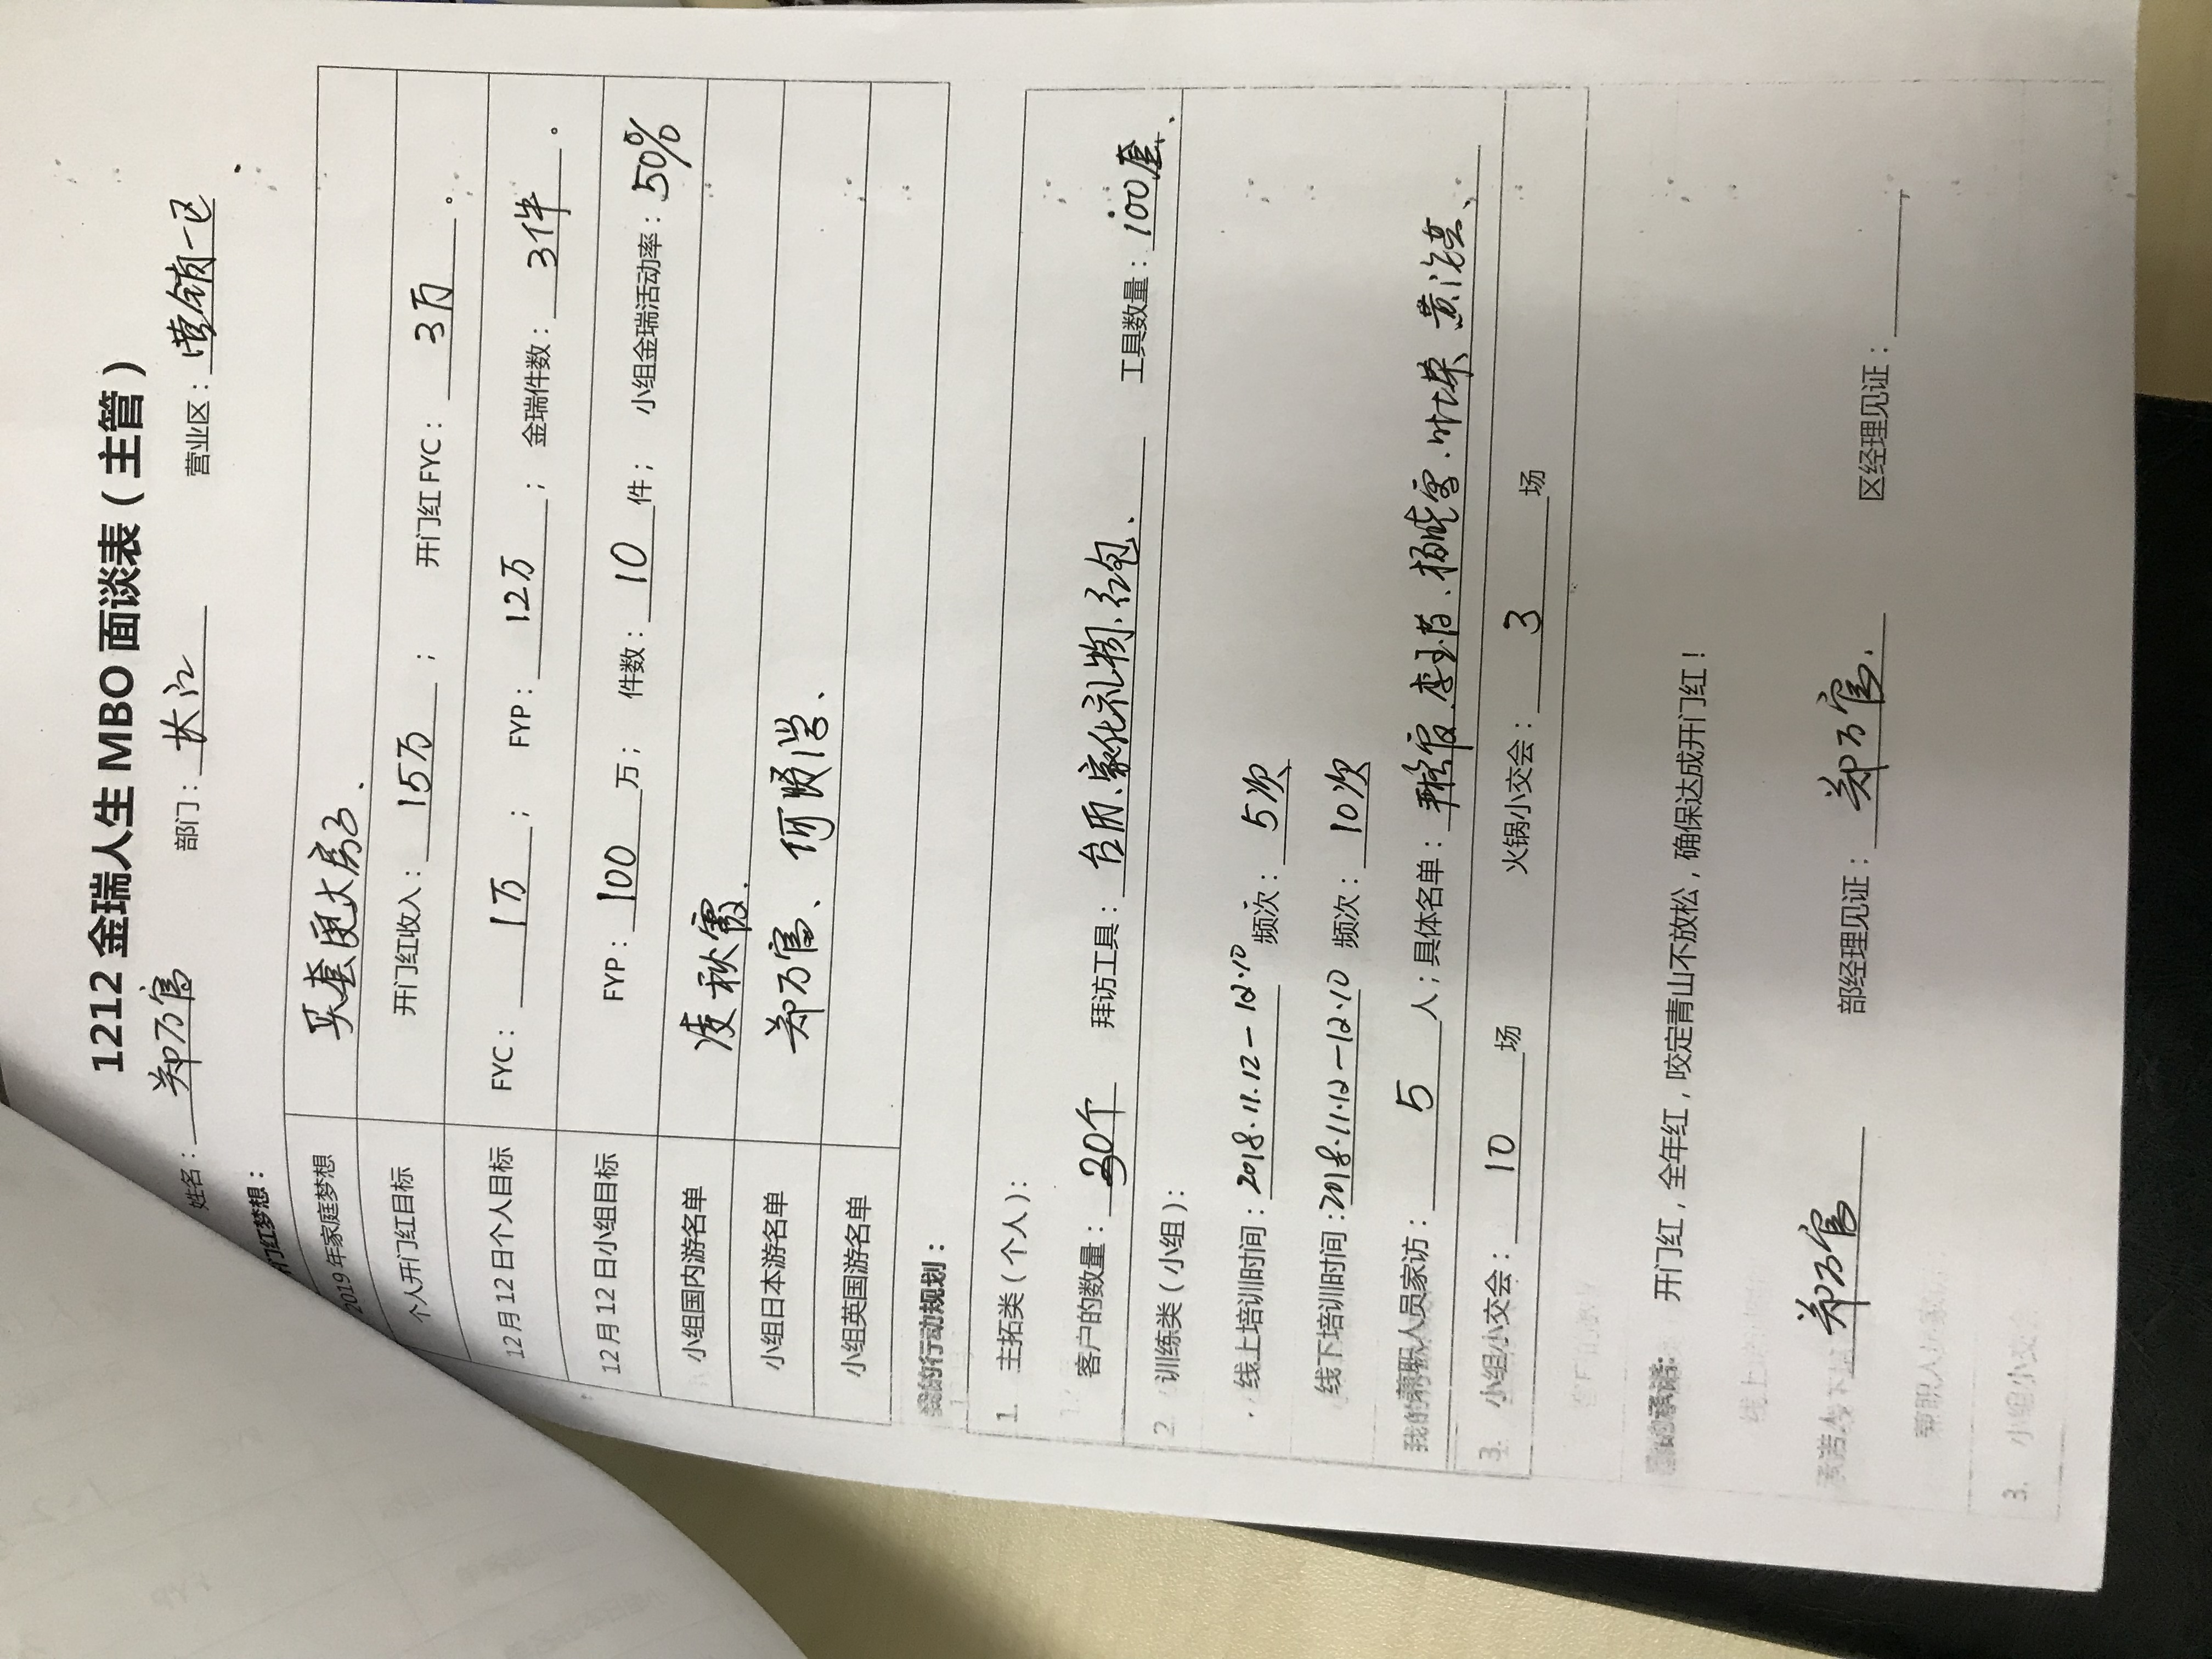 1212金瑞人生MBO面谈表（主管）
姓名：郑万富 部门：长江 营业区：营销一区
门红梦想：
2019年家庭梦想 买套更大房子、
个人开门红目标 开门红收入：15万； 开门红FYC：3万。
12月12日个人目标 FYC：1万； FYP：12万； 金瑞件数：3件。
12月12日小组目标 FYP：100万； 件数：10件； 小组金瑞活动率：50%
小组国内游名单 凌秋霞.
小组日本游名单 郑万富、何顺洪、
小组英国游名单
我的行动规划：
1. 主拓类（个人）：
客户的数量：30个 拜访工具：台历、家化礼物、红包、 工具数量：100套、
2. 训练类（小组）：
线上培训时间：2018.11.12—12.10 频次：5次
线下培训时间：2018.11.12—12.10 频次：10次
我的兼职人员家访：5人；具体名单：李玉 杨晓雪 叶荣 黄
3. 小组小交会：10场 火锅小交会：3场
我的承诺：
开门红，全年红，咬定青山不放松，确保达成开门红！
承诺人：郑万富 部经理见证：郑万富. 区经理见证：
线上
兼职人
3. 小组小交会